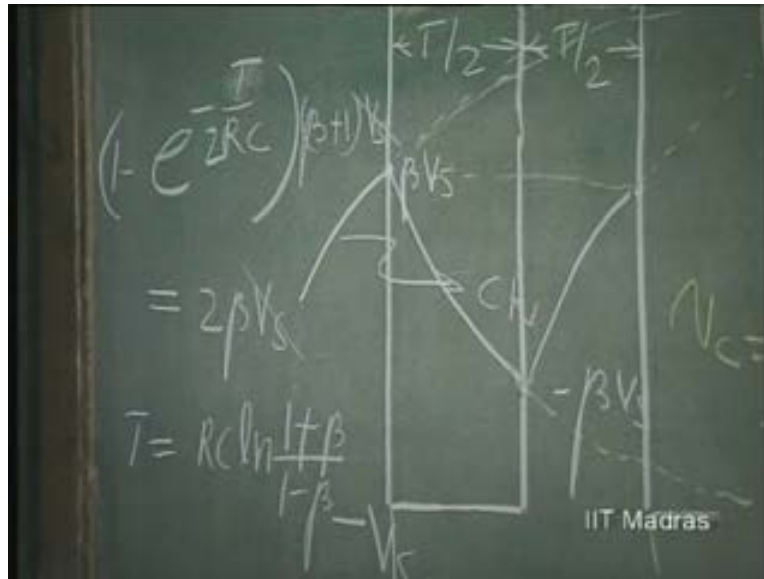 T/2 T/2
(1 - e^{-T/2RC}) (β+1) Vs
βVs
= 2βVs
-βVs
T = RC ln 1+β/1-β
-Vs
IIT Madras